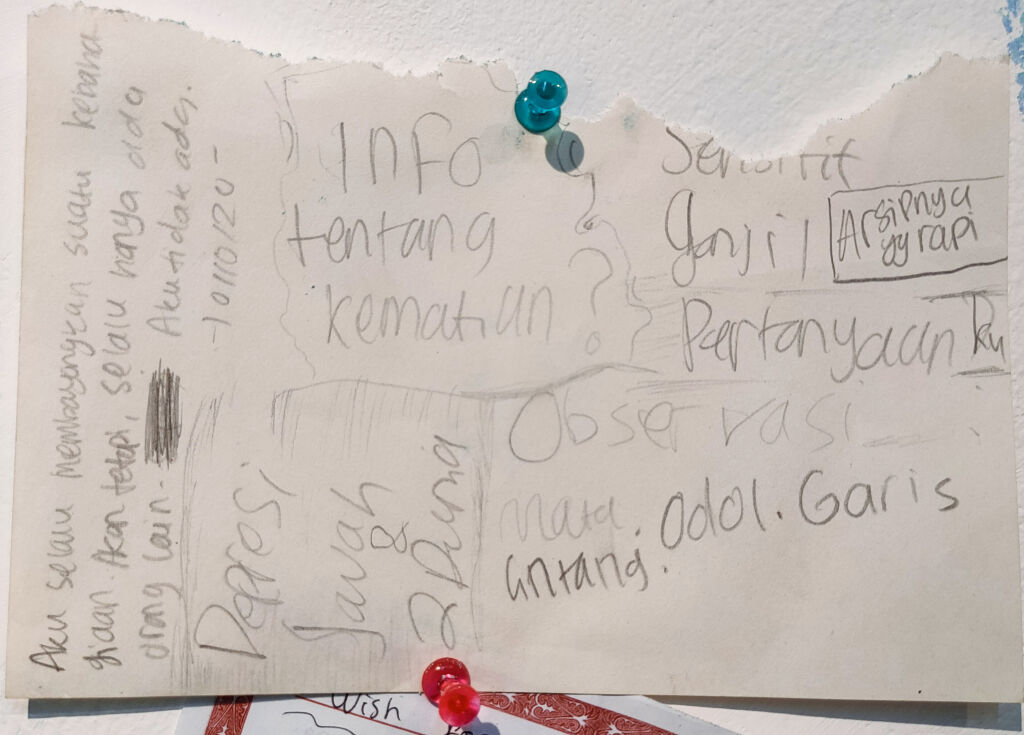 Aku selalu membayangkan suatu kebaha
giaan. Akan tetapi, selalu hanya ada
orang lain. Aku tidak ada.
- 10/10/20 -
Info
tentang
kematian ?
Sensitif
Ganjil
Arsipnya
yg rapi
Pertanyaanku
Depresi
Jawah
&
2 Dunia
Observasi
Mata. Odol. Garis
untang.
Wish